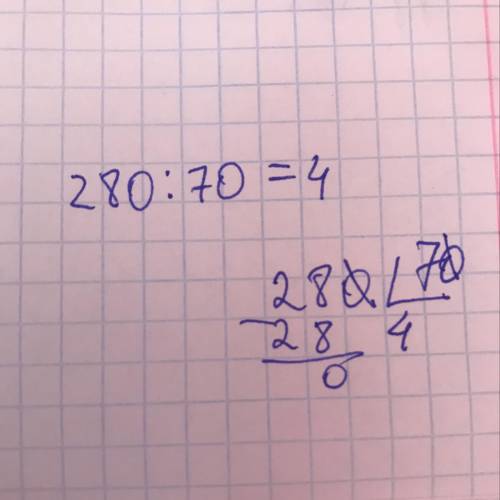 280:70=4
280 70
-28 4
0